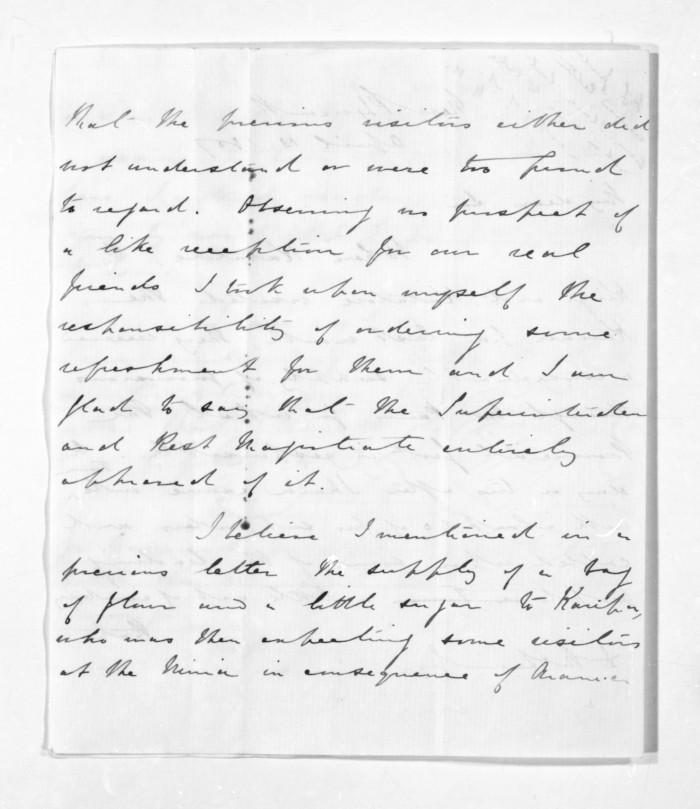 that the previous visitors either did
not understand or were too proud
to regard. Observing no prospect of
a like reception for our real
friends I took upon myself the
responsibility of ordering some
refreshment for them and I am
glad to say that the Superintenden
and Rest Magistrate entirely
approved of it.
I believe I mentioned in a
previous letter the supply of a bag
of flour and a little sugar to Karipa,
who was then expecting some visitors
at the in consequence of